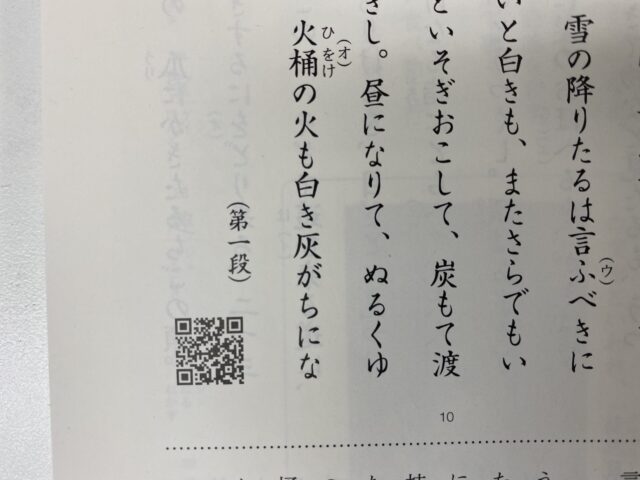 雪の降りたるは言ふべきに
(ウ)
いと白きも、またさらでもい
といそぎおこして、炭もて渡
さし。昼になりて、ぬるくゆ
火桶の火も白き灰がちにな
ひをけ
(オ)
(第一段)
10